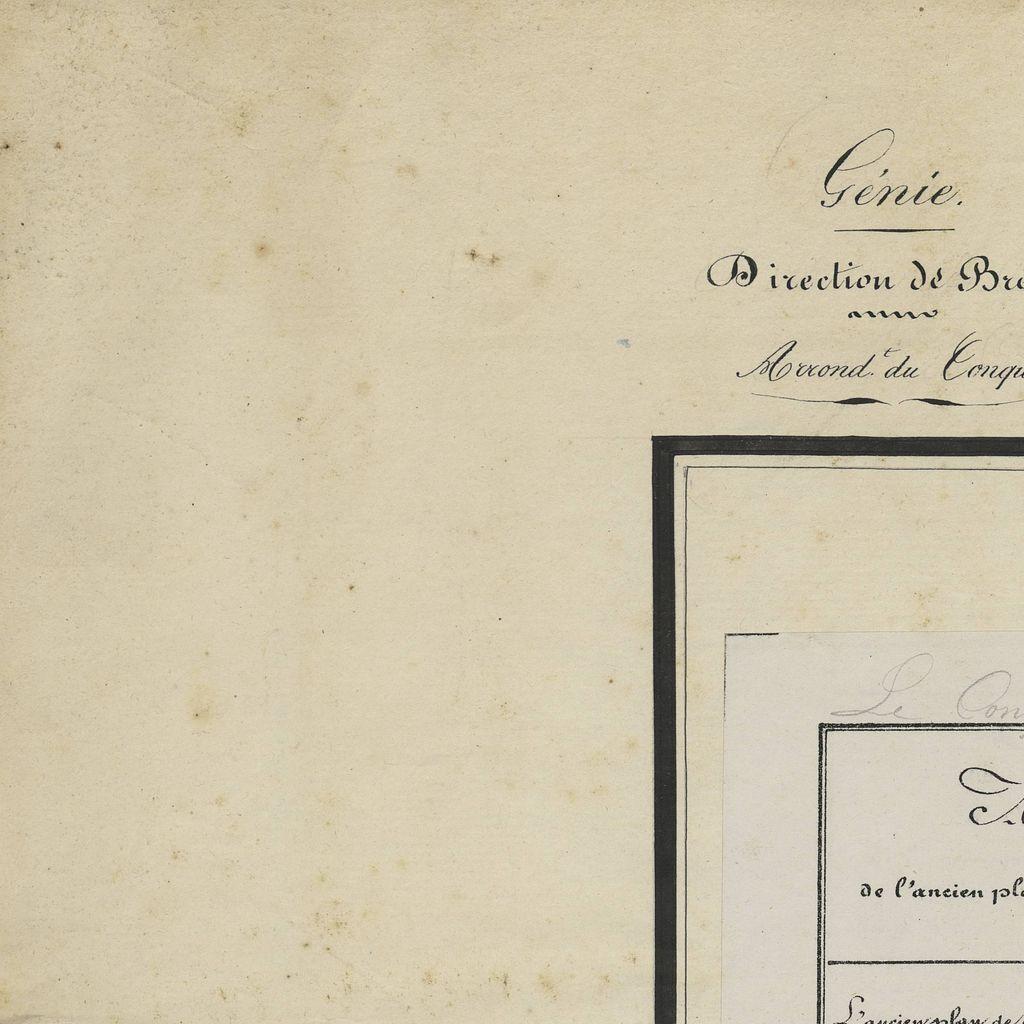 Génie.
Direction de Bre
Arrond.t du Conqu
Le Con
de l'ancien pla
L'ancien plan de